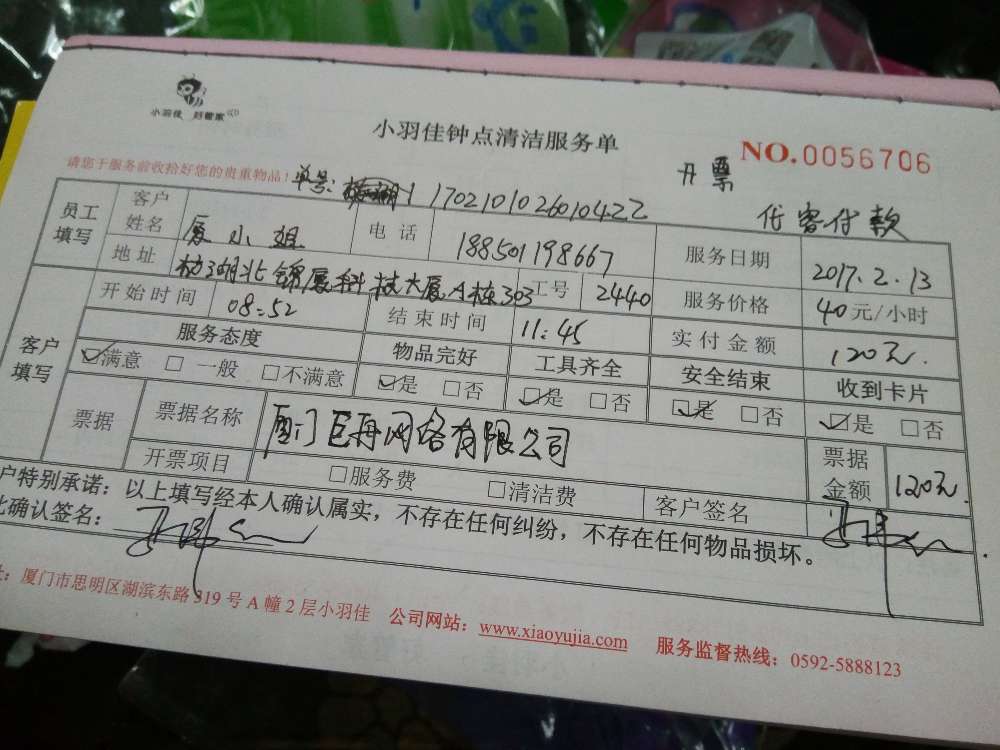 小羽佳 好管家
小羽佳钟点清洁服务单
NO.0056706
请您于服务前收拾好您的贵重物品!
单号: 1702101026010422
开票
代客付款
员工填写
客户姓名 厦小姐 电话 188501198667 服务日期 2017.2.13
地址 枋湖北锦展科技大厦A栋303 工号 2440 服务价格 40元/小时
客户填写
开始时间 08:52 结束时间 11:45 实付金额 120元.
服务态度 物品完好 工具齐全 安全结束 收到卡片
☑满意 □一般 □不满意 ☑是 □否 ☑是 □否 ☑是 □否 ☑是 □否
票据 票据名称 厦门巨再网络有限公司 票据金额 120元.
开票项目 □服务费 □清洁费 客户签名
户特别承诺:以上填写经本人确认属实,不存在任何纠纷,不存在任何物品损坏。
比确认签名:
址:厦门市思明区湖滨东路319号A幢2层小羽佳 公司网站:www.xiaoyujia.com 服务监督热线:0592-5888123